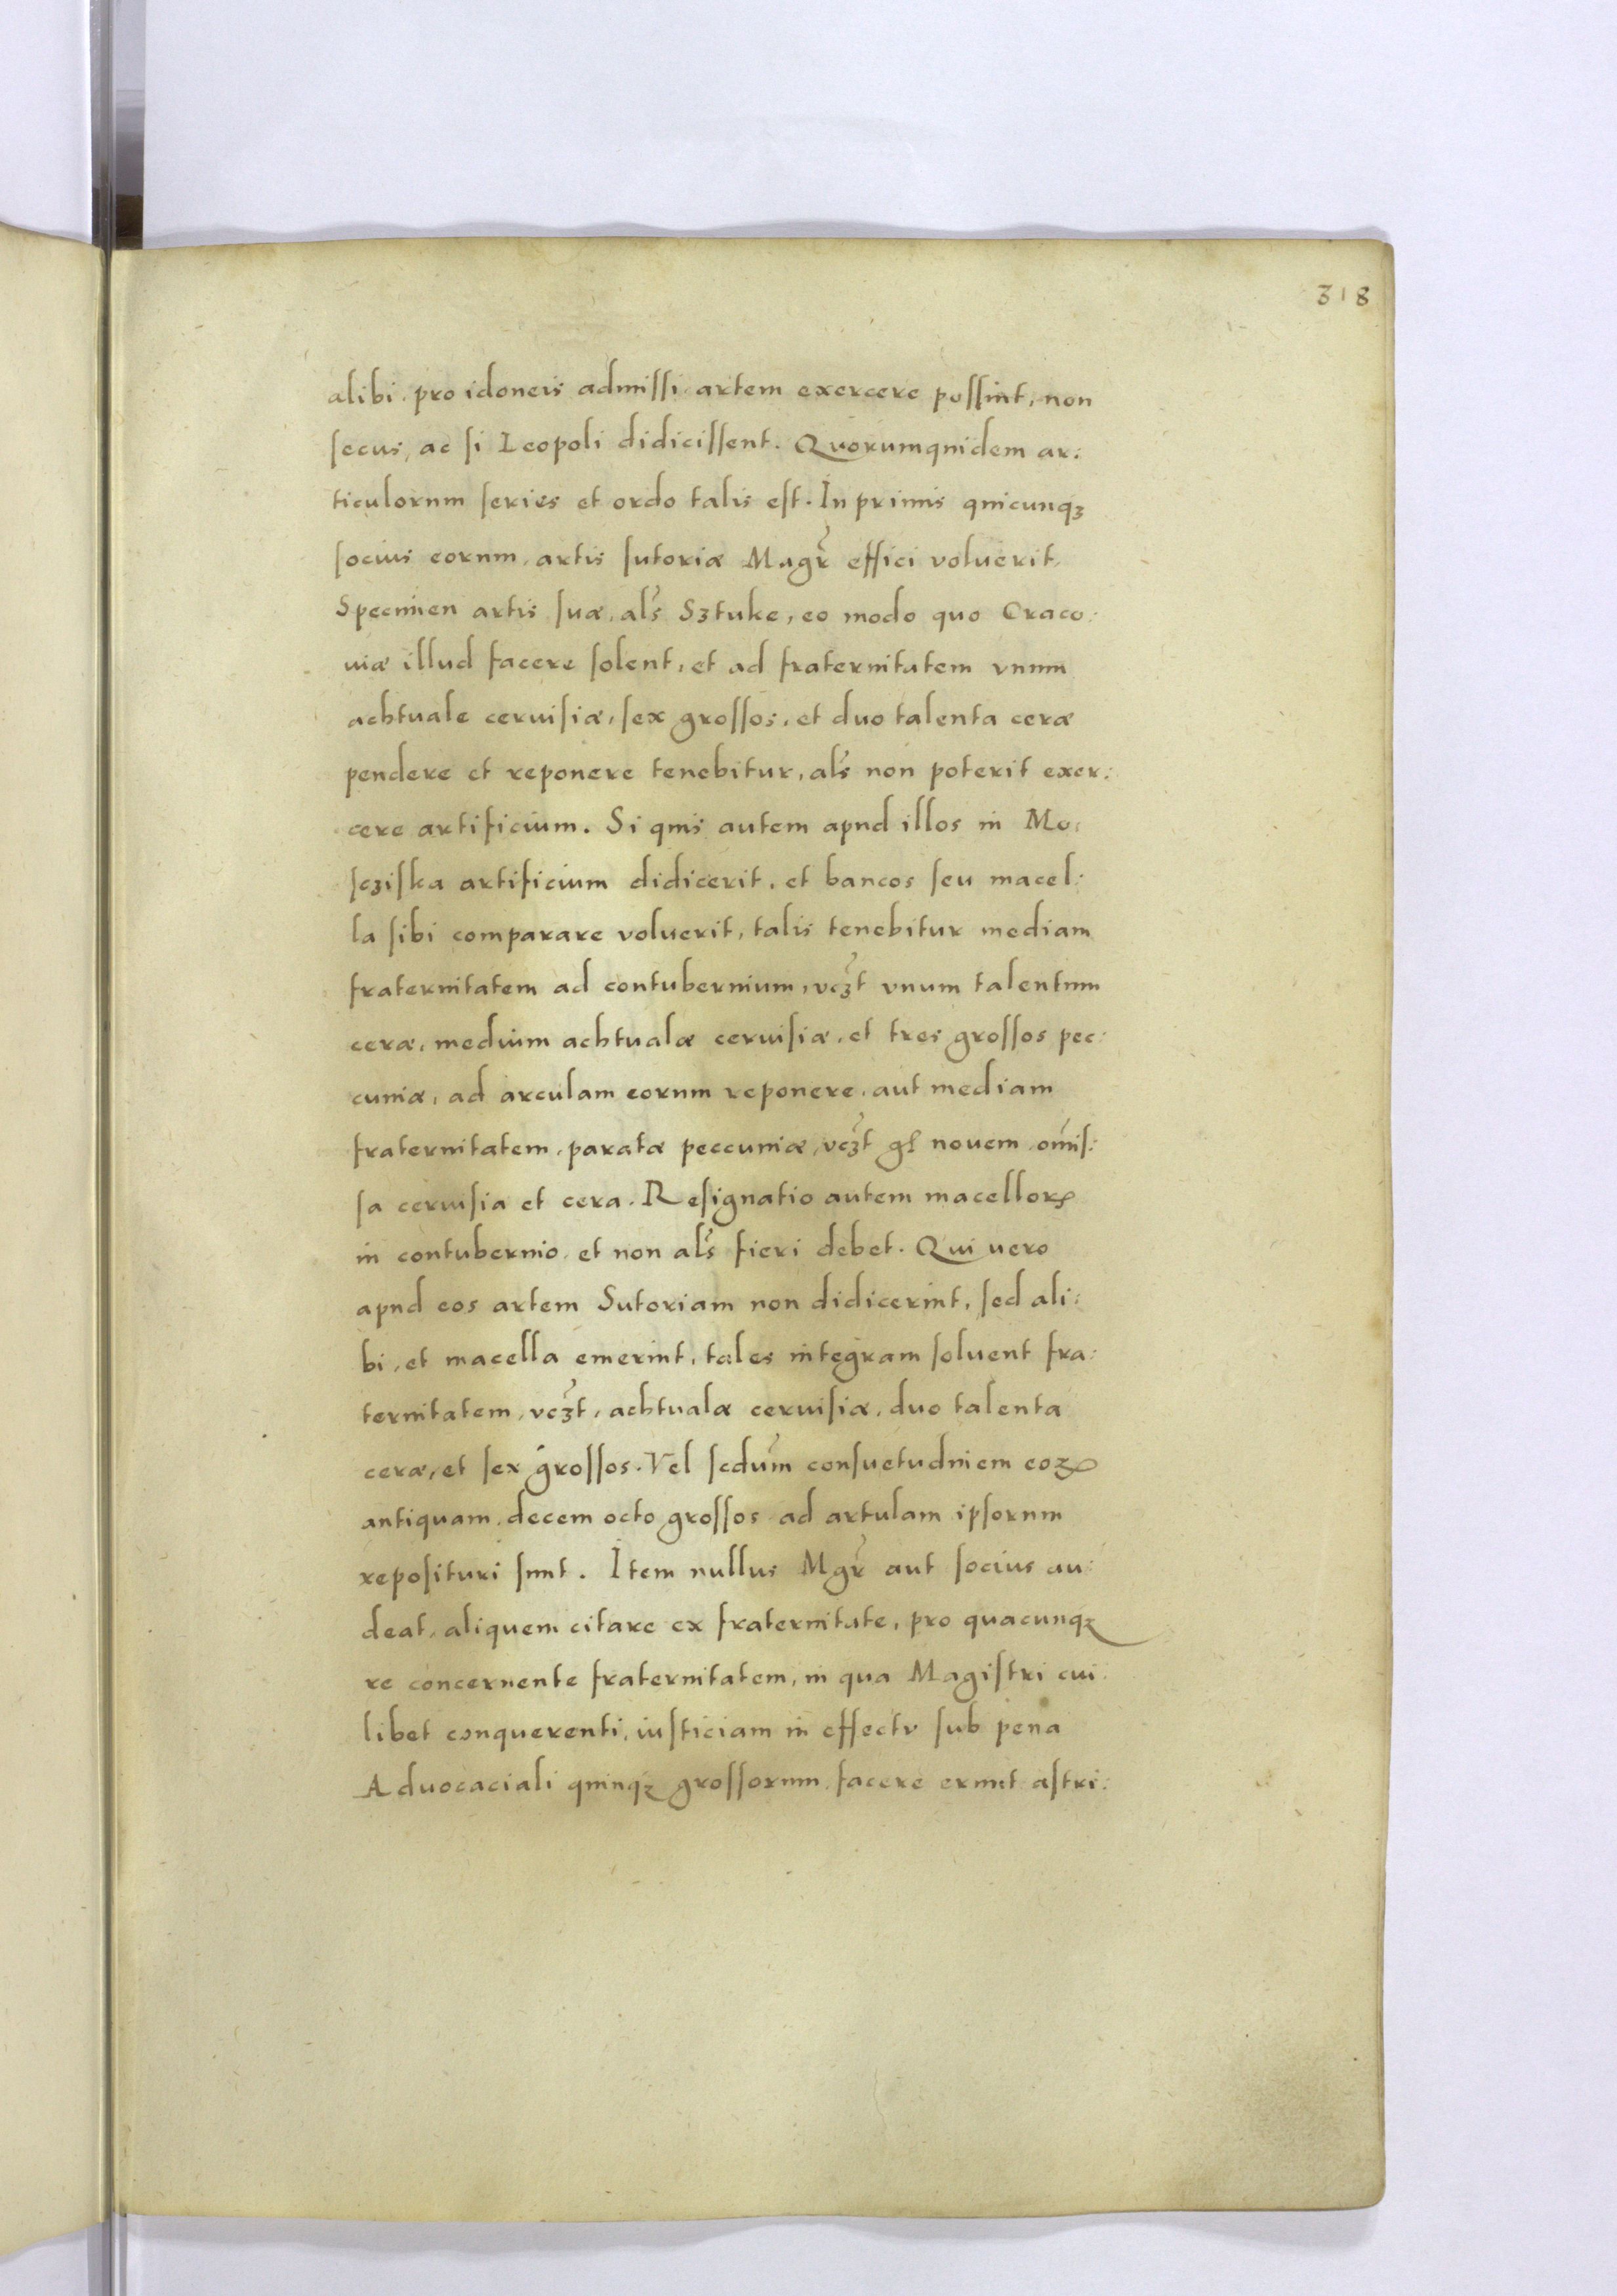 318
alibi, pro idoneis admissi artem exercere possint, non
secus, ac si Leopoli didicissent. Quorumquidem ar:
ticulorum series et ordo talis est. In primis quicunqꝫ
socius eorum, artis sutoriæ Magr̃ effici voluerit,
Specimen artis suæ, als̃ Sztuke, eo modo quo Craco:
uiæ illud facere solent, et ad fraternitatem vnum
achtuale ceruisiæ, sex grossos, et duo talenta ceræ
pendere et reponere tenebitur, als̃ non poterit exer:
cere artificium. Si quis autem apud illos in Mo:
scziska artificium didicerit, et bancos seu macel:
la sibi comparare voluerit, talis tenebitur mediam
fraternitatem ad contubernium, vcꝫ̃t vnum talentum
ceræ, medium achtualæ ceruisiæ, et tres grossos pec:
cuniæ, ad arculam eorum reponere, aut mediam
fraternitatem, paratæ peccuniæ, vcꝫ̃t gł nouem, omis:
sa ceruisia et cera. Resignatio autem macelloꝝ
in contubernio et non als̃ fieri debet. Qui uero
apud eos artem Sutoriam non didicerint, sed ali:
bi, et macella emerint, tales integram soluent fra:
ternitatem, vcꝫ̃t, achtualæ ceruisiæ, duo talenta
ceræ, et sex grossos. Vel scdum̃ consuetudinem eoꝝ
antiquam, decem octo grossos ad artulam ipsorum
reposituri sunt. Item nullus Mgr̃ aut socius au:
deat, aliquem citare ex fraternitate, pro quacunqꝫ
re concernente fraternitatem, in qua Magistri cui:
libet conquerenti, iusticiam in effectu sub pena
Aduocaciali quinqꝫ grossorum, facere erunt astri: